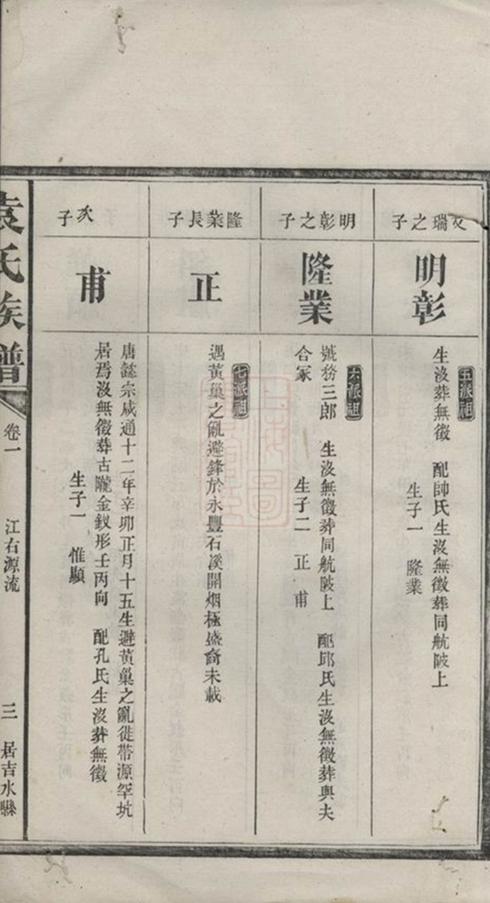 文瑞之子
明彰
五派祖
生沒葬無徵　配帥氏生沒無徵葬同航陂上
生子一　隆業
明彰之子
隆業
六派祖
號務三郎　生沒無徵葬同航陂上　配邱氏生沒無徵葬與夫
合冢　生子二　正　甫
隆業長子
正
七派祖
遇黃巢之亂避鋒於永豐石溪開烟極盛裔未載
次子
甫
唐懿宗咸通十二年辛卯正月十五生避黃巢之亂徙帶源罕坑
居焉沒無徵葬古隴金釵形壬丙向　配孔氏生沒葬無徵
生子一　惟顯
袁氏族譜
卷一
江右源流
三
居吉水縣